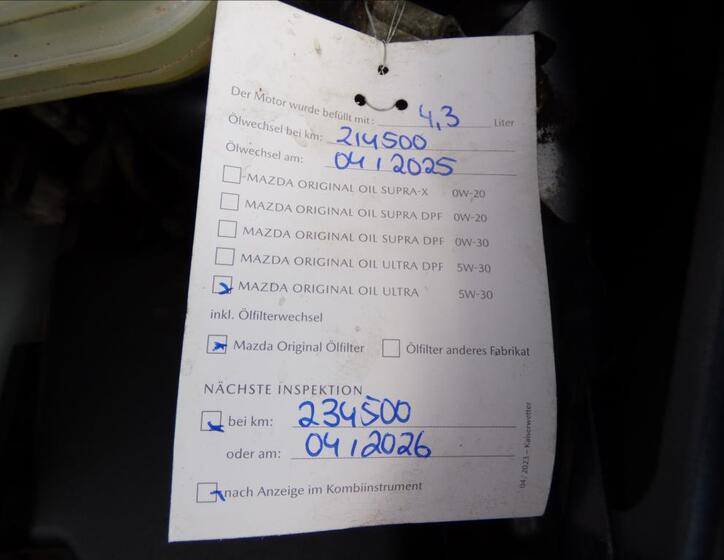 Der Motor wurde befüllt mit: 4,3 Liter
Ölwechsel bei km: 214500
Ölwechsel am: 04 / 2025
MAZDA ORIGINAL OIL SUPRA-X 0W-20
MAZDA ORIGINAL OIL SUPRA DPF 0W-20
MAZDA ORIGINAL OIL SUPRA DPF 0W-30
MAZDA ORIGINAL OIL ULTRA DPF 5W-30
MAZDA ORIGINAL OIL ULTRA 5W-30
inkl. Ölfilterwechsel
Mazda Original Ölfilter Ölfilter anderes Fabrikat
NÄCHSTE INSPEKTION
bei km: 234500
oder am: 04 / 2026
nach Anzeige im Kombiinstrument
04/2023 – Kaiserwetter